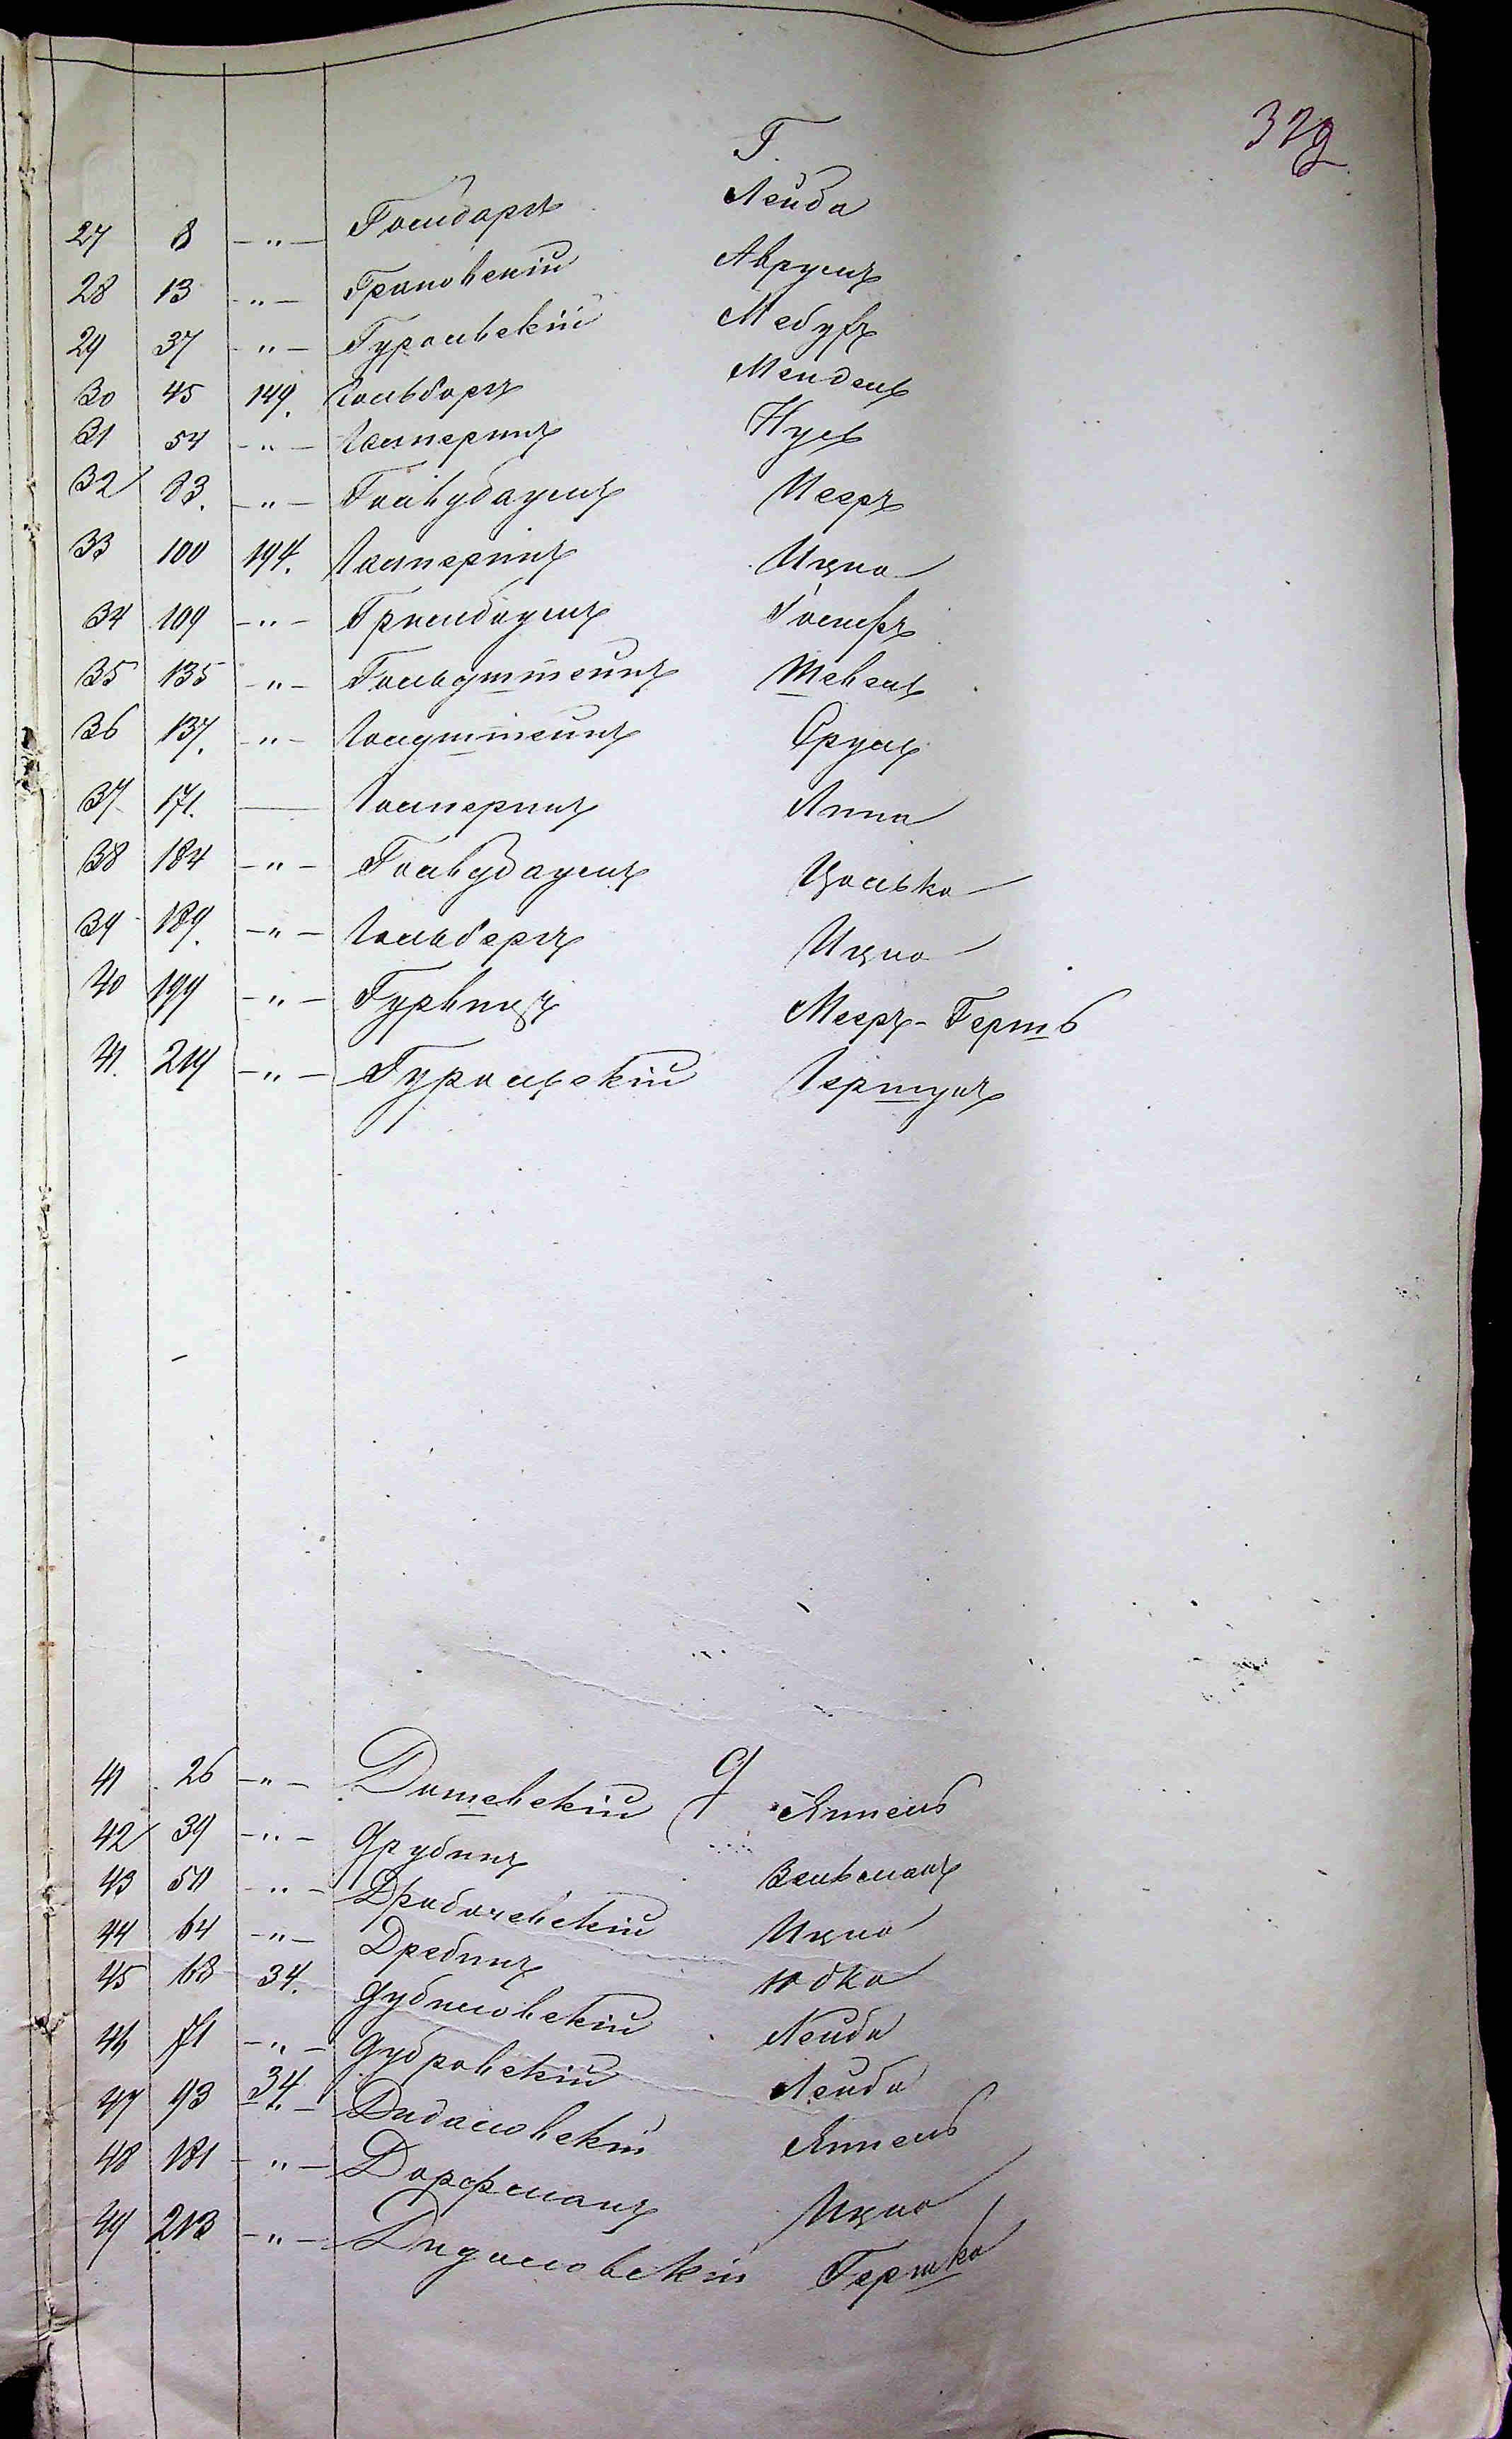 329
Г.
27 8 -"- Гольдаръ Лейба
28 13 -"- Грановскій Аврумъ
29 37 -"- Гуральскій
30 45 149. Гольдбергъ Мендель
31 54 -"- Гальперинъ Нусь
32 83. -"- Гольдбаумъ Мееръ
33 100 194. Гальперинъ Ицко
34 109 -"- Гринбаумъ Іосифъ
35 135 -"- Гольдштейнъ Шевель
36 137. -"- Голдштейнъ Сруль
37 171. — Гальперинъ Анна
38 184 -"- Гольдбаумъ Цалька
39 189. -"- Гольбергъ Ицко
40 199 -"- Гурвицъ Мееръ-Гершъ
41. 214 -"- Гуральскій Гершунъ
Д
41 26 -"- Дашевскій Янкель
42 39 -"- Друбинъ Зельманъ
43 50 -"- Драбачевскій Ицко
44 64 -"- Дребинъ Юдка
45 68 34. Дубиновскій Лейба
46 71 -"- Дубровскій Лейба
47 93 34. Дидановскій Янкель
48 181 -"- Дорфманъ Ицко
49 213 -"- Дидановскій Гершко